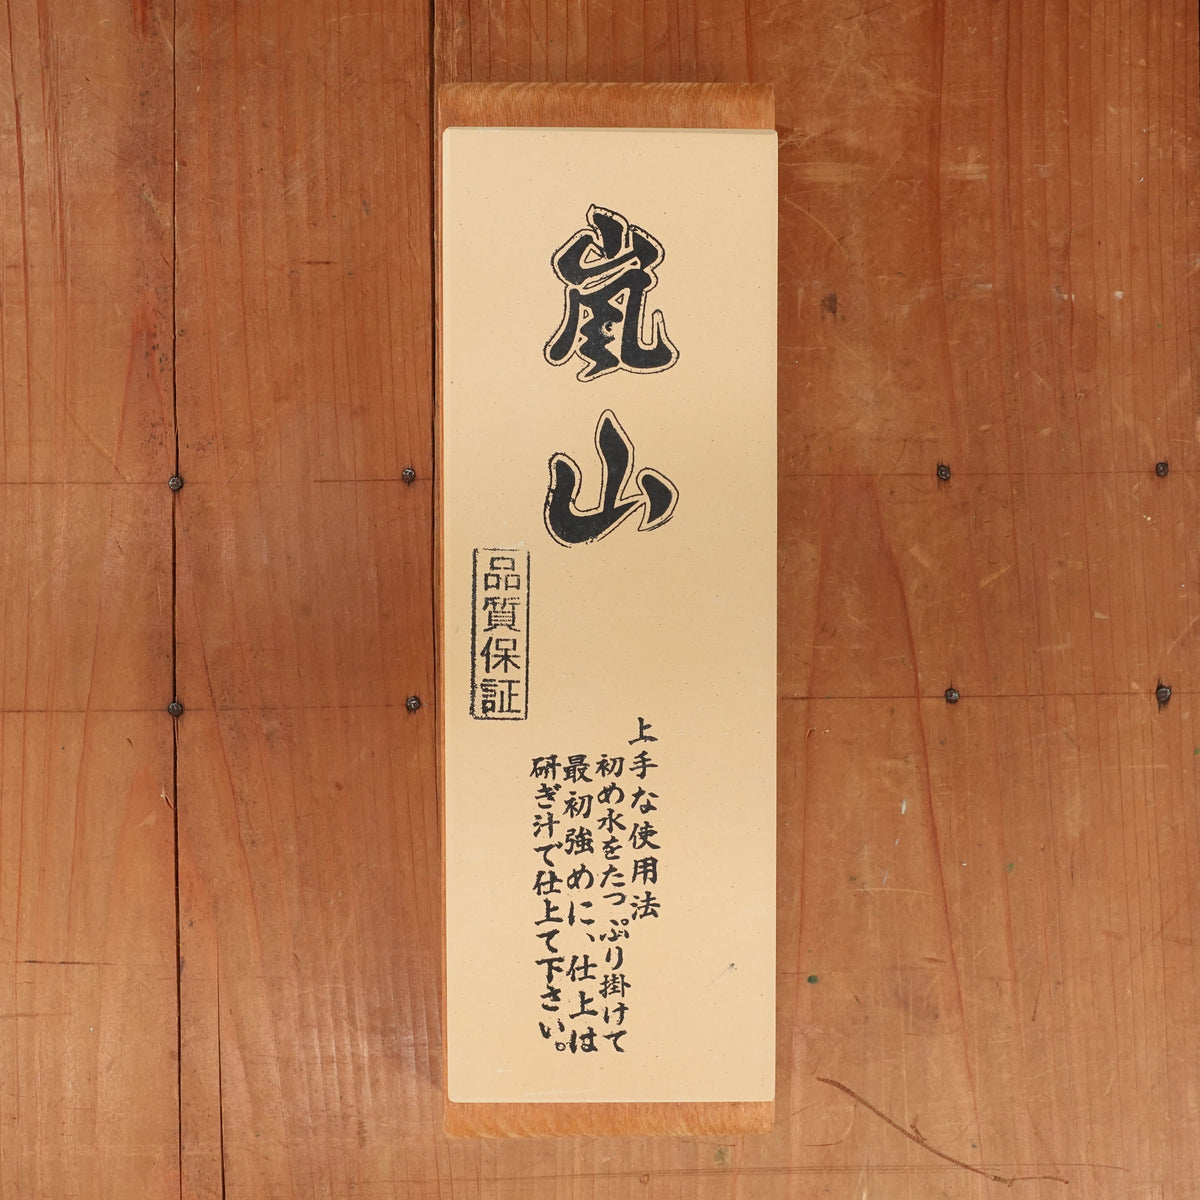 嵐山
品質保証
上手な使用法
初め水をたっぷり掛けて
最初強めに、仕上は
研ぎ汁で仕上て下さい。